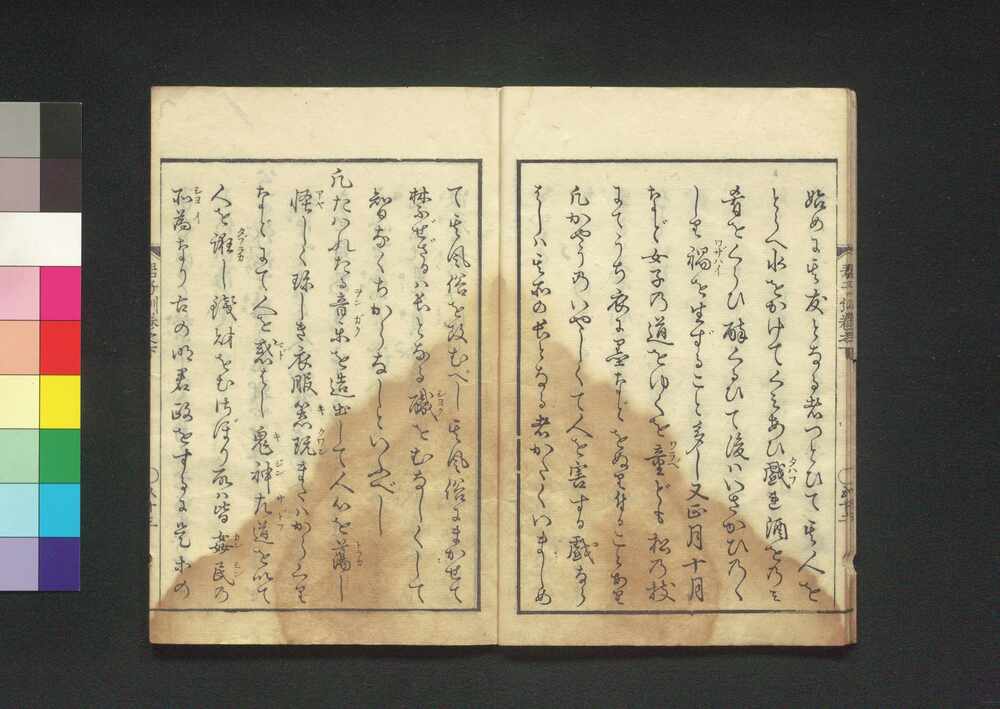 始めに其友となる者つとひて其人を
とらへ水をかけてくるあひ戯連酒をのミ
肴をくらひ酔くるひて後ハいさかひのゝ
しり禍を生ずること多し又正月十月
など女子の道をゆくを童ども松の枝
にてうち衣に墨などをぬり付ることあり
凡かやうのいやしくして人を害する戯なら
はしハ其所の長となる者かたくいましめ
て其風俗を改むべし其風俗にまかせて
禁ぜざるハ長となる職をむなしくして
智なくちからなしといふべし
凡たハれたる音楽を造出して人心を蕩し
怪しく珍しき衣服器玩またハからくり
などにて人を惑はし鬼神左道を以て
人を誑し錢財をむさぼり取ハ皆姦民の
所為なり古の明君政をするに是等の